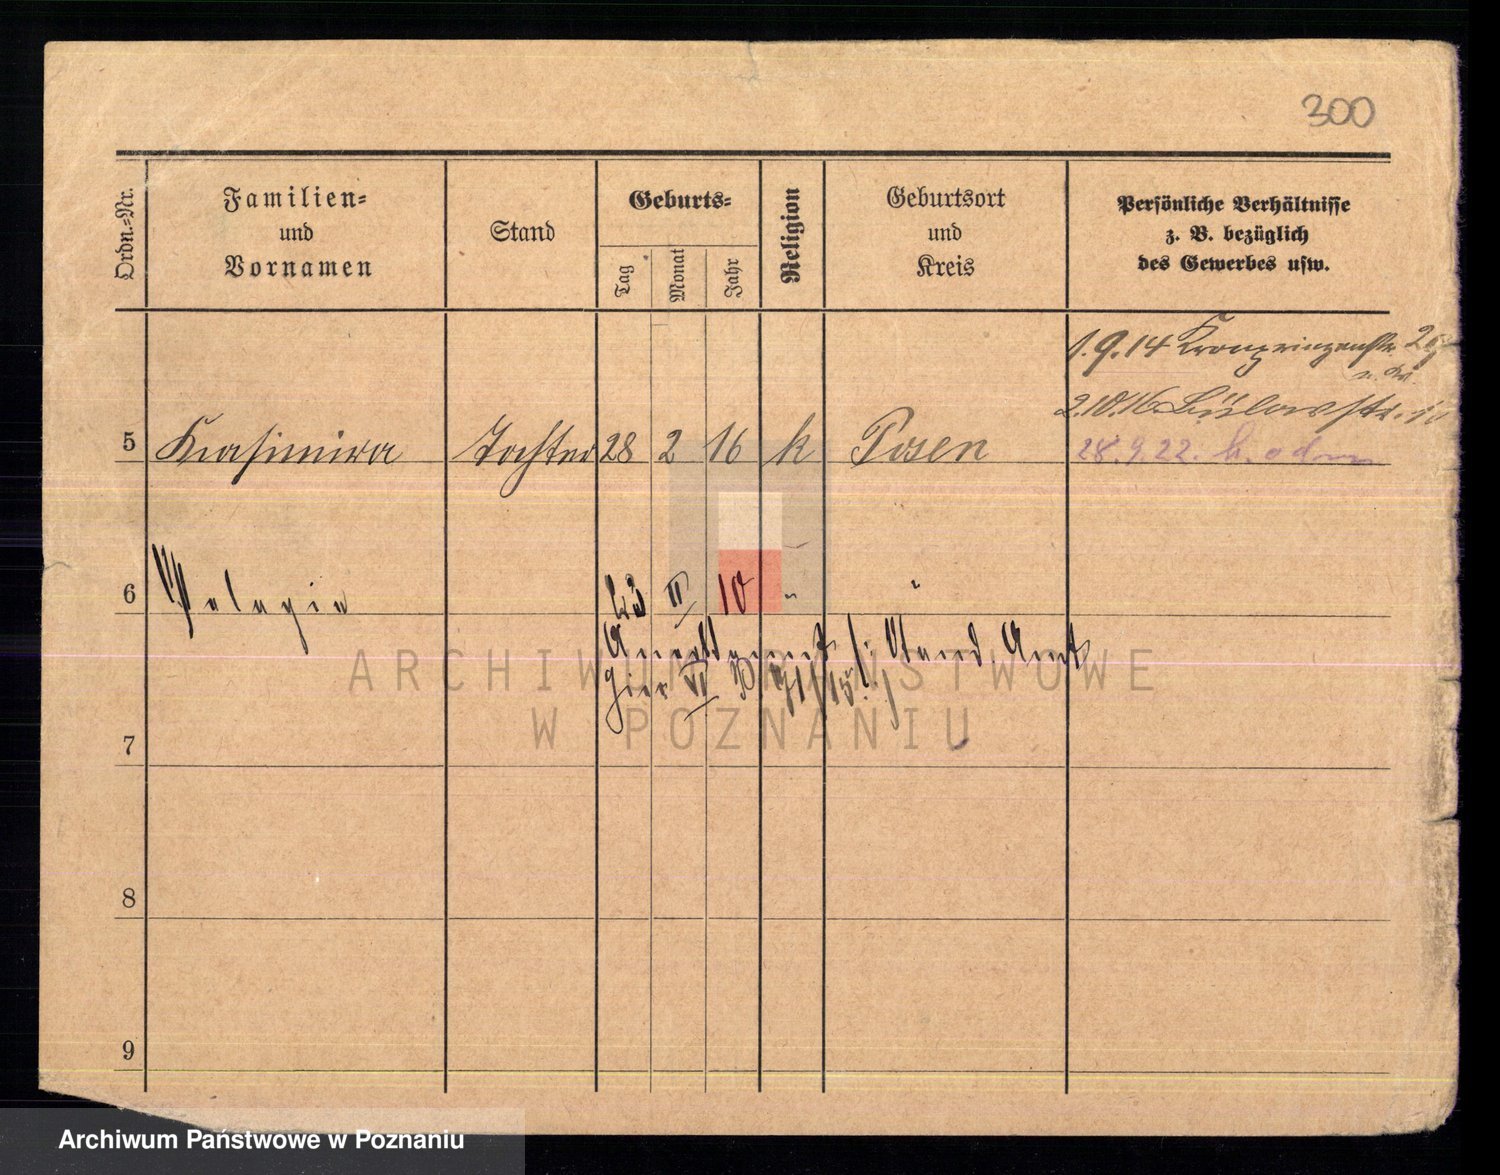 300
Ordn.-Nr.
Familien-
und
Vornamen
Stand
Geburts-
Tag
Monat
Jahr
Religion
Geburtsort
und
Kreis
Persönliche Verhältnisse
z. B. bezüglich
des Gewerbes usw.
1.9.14 Kronprinzenstr.
2.10.16 Bülowstr.
5 Kasimira Tochter 28 2 16 k Posen 28.9.22.
6 Pelagia 23 II 10 " "
Stand Amt
VI
7
8
9
ARCHIWUM PAŃSTWOWE
W POZNANIU
Archiwum Państwowe w Poznaniu